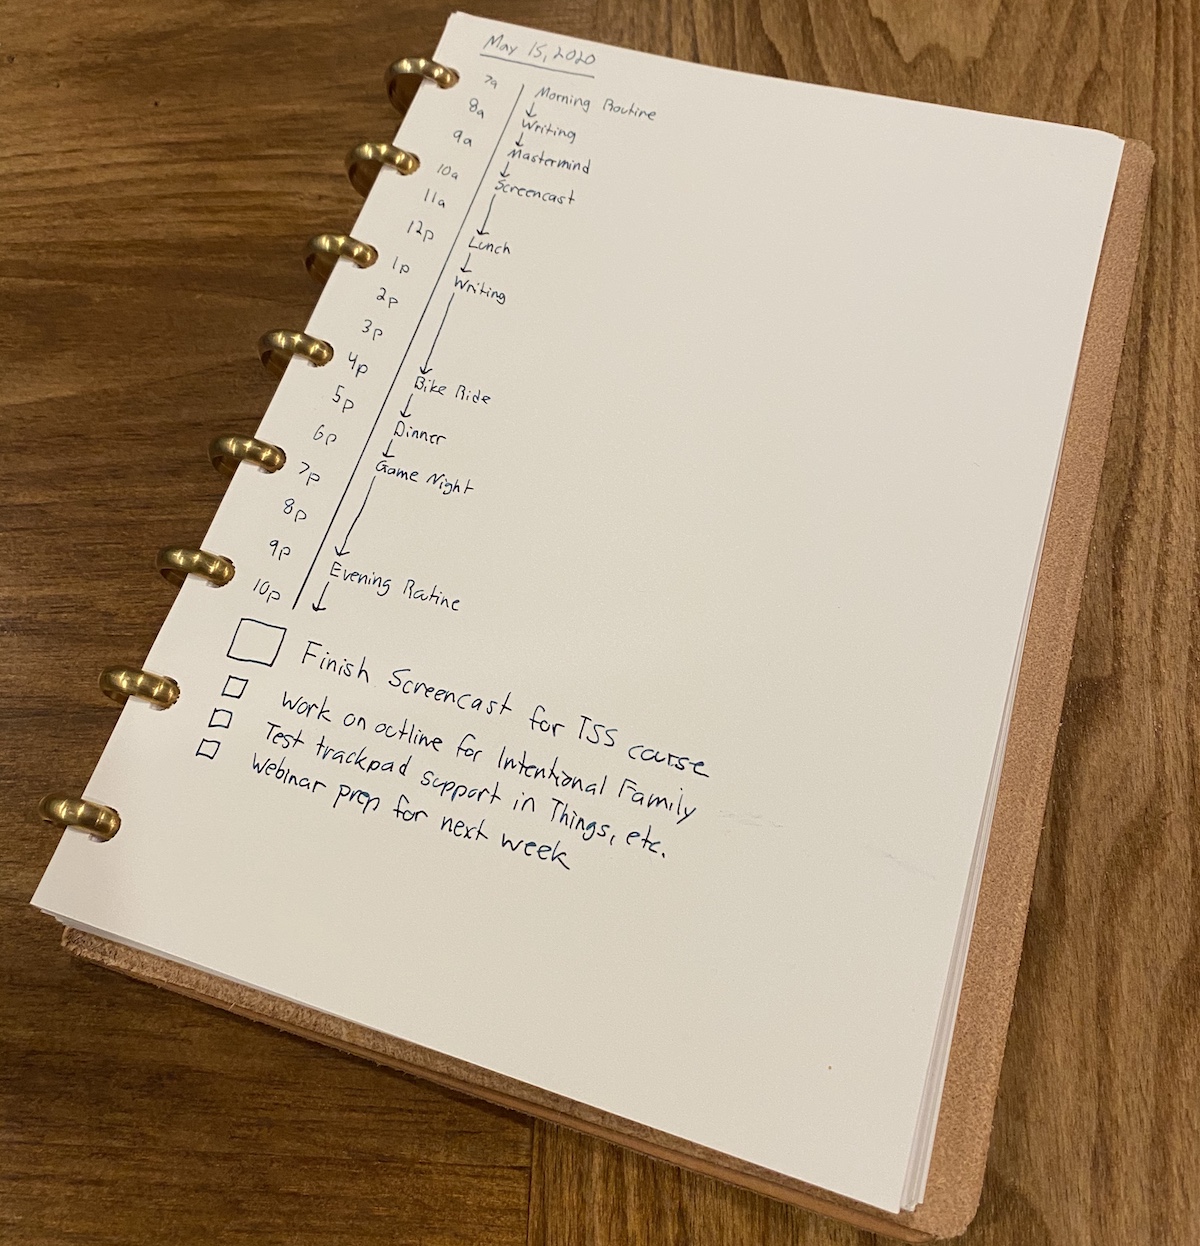 May 15, 2020
7a Morning Routine
8a Writing
9a Mastermind
10a Screencast
11a
12p Lunch
1p Writing
2p
3p
4p Bike Ride
5p Dinner
6p Game Night
7p
8p
9p Evening Routine
10p
Finish Screencast for TSS course
Work on outline for Intentional Family
Test trackpad support in Things, etc.
Webinar prep for next week